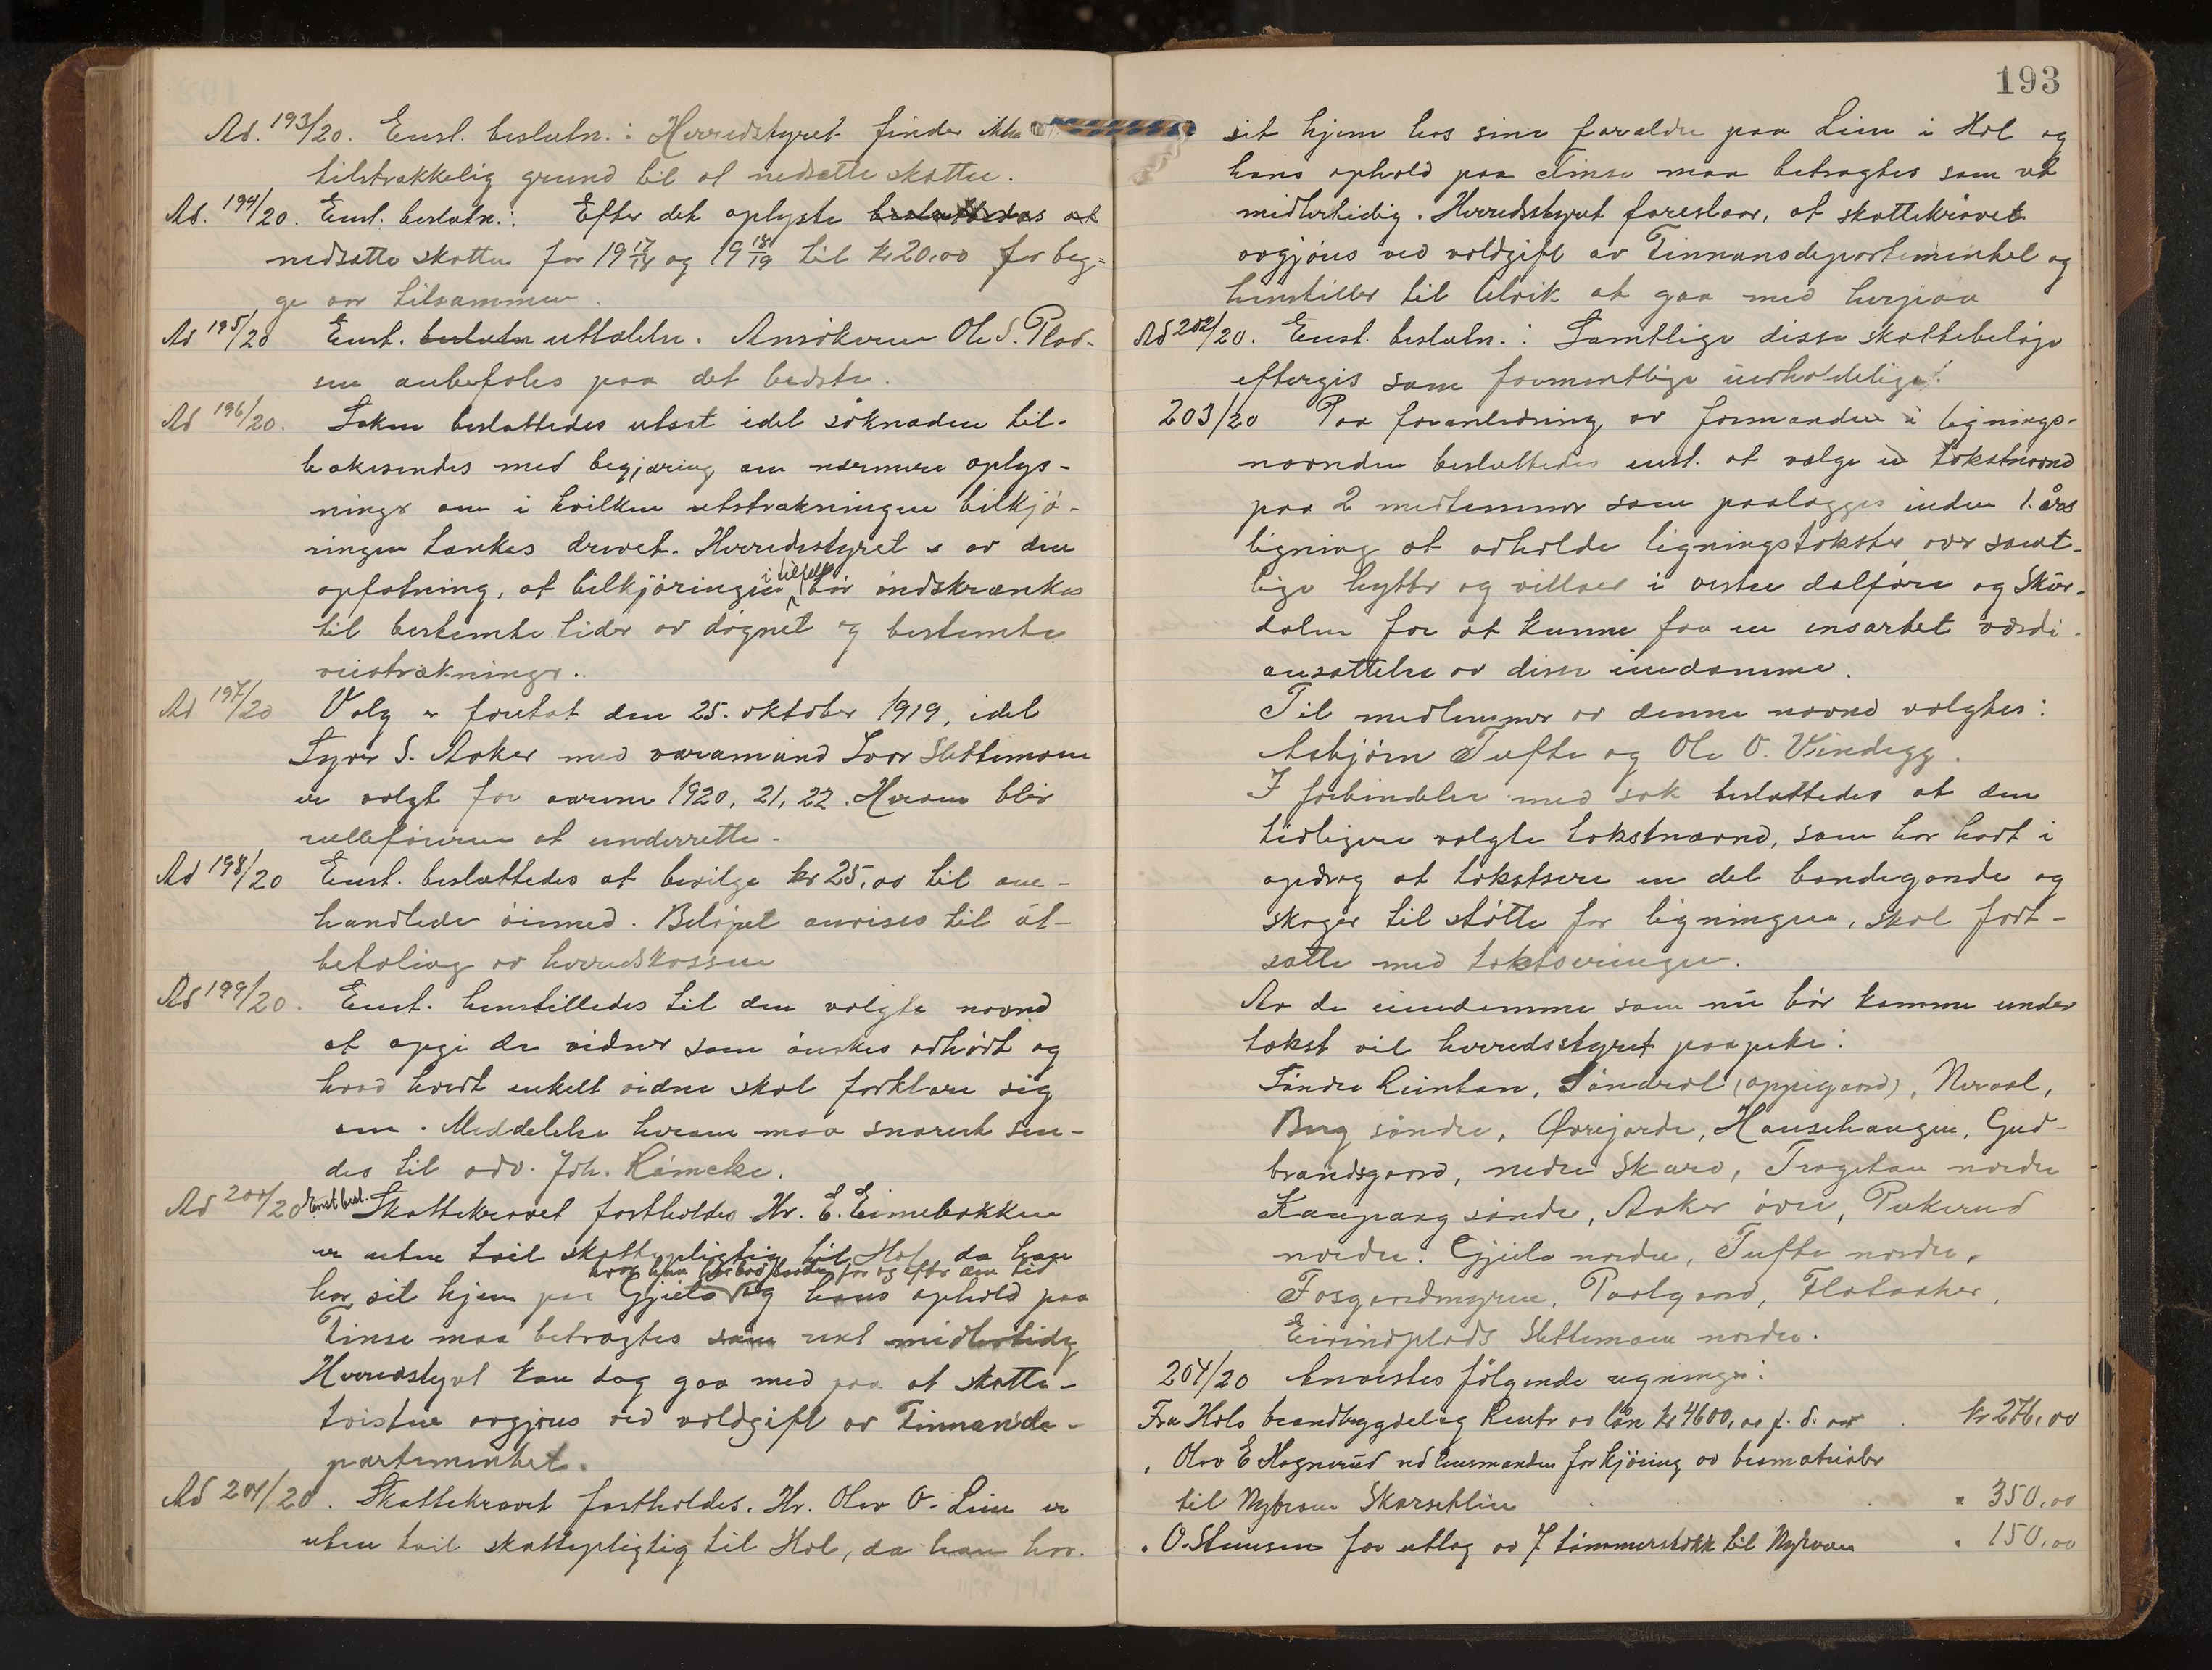 Ad. 193/20. Enst. beslutn.: Herredstyret finder ikke
tilstrækkelig grund til at nedsætte skatten.
Ad. 194/20. Enst. beslutn.: Efter det oplyste besluttedes at
nedsætte skatten for 19 17/18 og 19 18/19 til kr 20,00 for beg-
ge aar tilsammen.
Ad 195/20 Enst. beslutn uttalelse. Ansökeren Ole S. Plad-
sen anbefales paa det bedste.
Ad 196/20. Saken besluttedes utsat idet söknaden til-
bakesendes med begjæring om nærmere oplys-
ninger om i hvilken utstrækningen bilkjö-
ringen tænkes drevet. Herredsstyret er av den
opfatning, at bilkjöringen i tilfelle bör indskrænkes
til bestemte tider av dögnet og bestemte
veistrækninger.
Ad 197/20 Valg er foretat den 25. oktober 1919, idet
Syver S. Aaker med varamand Ivar Slettemoen
er valgt for aarene 1920, 21, 22. Herom blir
rulleföreren at underrette.
Ad 198/20 Enst. besluttedes at bevilge kr 25,00 til om-
handlede öiemed. Belöpet anvises til ut-
betaling av herredskassen
Ad 199/20. Enst. henstilledes til den valgte nævnd
at opgi de vidner som önskes avhört og
hvad hvert enkelt vidne skal forklare sig
om. Meddelelse herom maa snarest sen-
des til adv. Joh. Römcke.
Ad 200/20 Enst besl. Skattekravet fastholdes Hr. E. Eimebakken
er uten tvil skattepligtig til Hol, da han
hvor han har bodd baade för og efter den tid
har sit hjem paa Gjeilo og hans ophold paa
Finse maa betragtes som rent midlertidig
Herredstyret kan dog gaa med paa at skatte-
tvisten avgjöres ved voldgift av Finnansde-
partementet.
Ad 201/20. Skattekravet fastholdes. Hr. Olav O. Lien er
uten tvil skattepligtig til Hol, da han har.
193
sit hjem hos sine forældre paa Lien i Hol og
hans ophold paa Finse maa betragtes som et
midlertidig. Herredsstyret foreslaar, at skattekravet
avgjöres ved voldgift av Finnansdepartementet og
henstiller til Ulvik at gaa med herpaa
Ad 202/20. Enst. beslutn.: Samtlige disse skattebelöp
eftergis som formentlige uerholdelige.
203/20 Paa foranledning av formanden i lignings-
nævnden besluttedes enst. at vælge en takstnævnd
paa 2 medlemmer som paalægges inden 1. års
ligning at avholde ligningstakster over samt-
lige hytter og villaer i vestre dalföre og Skur-
dalen for at kunne faa en ensartet værdi-
ansættelse av disse eiendomme.
Til medlemmer av denne nævnd valgtes:
Asbjörn Tufte og Ole O. Vindegg.
I forbindelse med sak besluttedes at den
tidligere valgte takstnævnd, som har hadt i
opdrag at takstsere en del bondegaarde og
skoger til stötte for ligningen, skal fort-
sætte med takseringen.
Av de eiendomme som nu bör komme under
takst vil herredsstyret paapeke:
Söndre Reinton, Sönderal (oppigaard), Neraal,
Berg söndre, Øvrejorde, Hansehaugen, Gud-
brandsgaard, nedre Skaro, Trageton nordre
Kaupang söndre, Aaker övre, Pukerud
nordre. Gjeilo nordre, Tufte nordre,
Fosgardmyren, Paalgaard, Flataaker,
Eivindplads Slettemoen nordre.
204/20 Anvistes fölgende regninger:
Fra Hols brandbygdelag Renter av lån kr 4600,00 f. d. aar . kr 276,00
" Olav E Hagnerud ved lensmanden for kjöring av bromaterialer
til Nybroen Skarsetlien . . . " 350,00
" O. Stensen for utlag av 7 tömmerstokk til Nybroen " 150,00